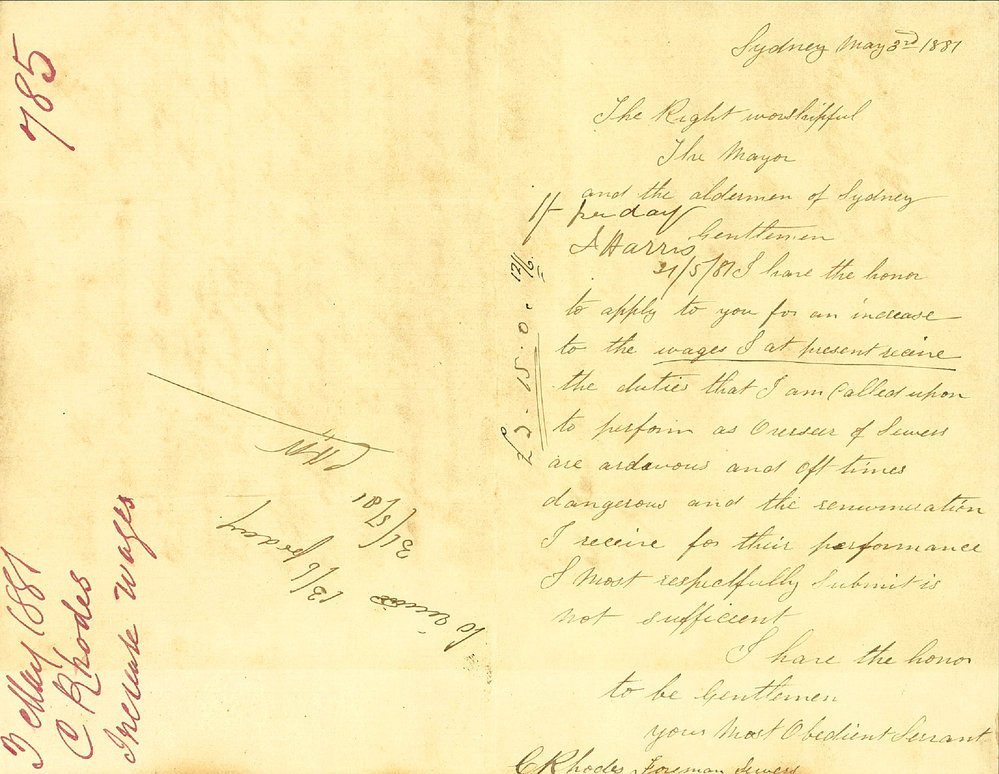 785
3 May 1881
C Rhodes
Increase wages
to receive
13/6 per day
31/5/81
Sydney May 3rd 1881
The Right worshipful
The Mayor
and the aldermen of Sydney
1/- per day
J Harris
21/5/81
Gentlemen
I have the honor
to apply to you for an increase
to the wages I at present receive
the duties that I am Called upon
to perform as Overseer of Sewers
are ardevous and oft times
dangerous and the renumeration
I receive for their performance
I Most respectfully Submit is
not sufficient
I have the honor
to be Gentlemen
your Most Obedient Servant
C Rhodes Foreman Sewers
12/6